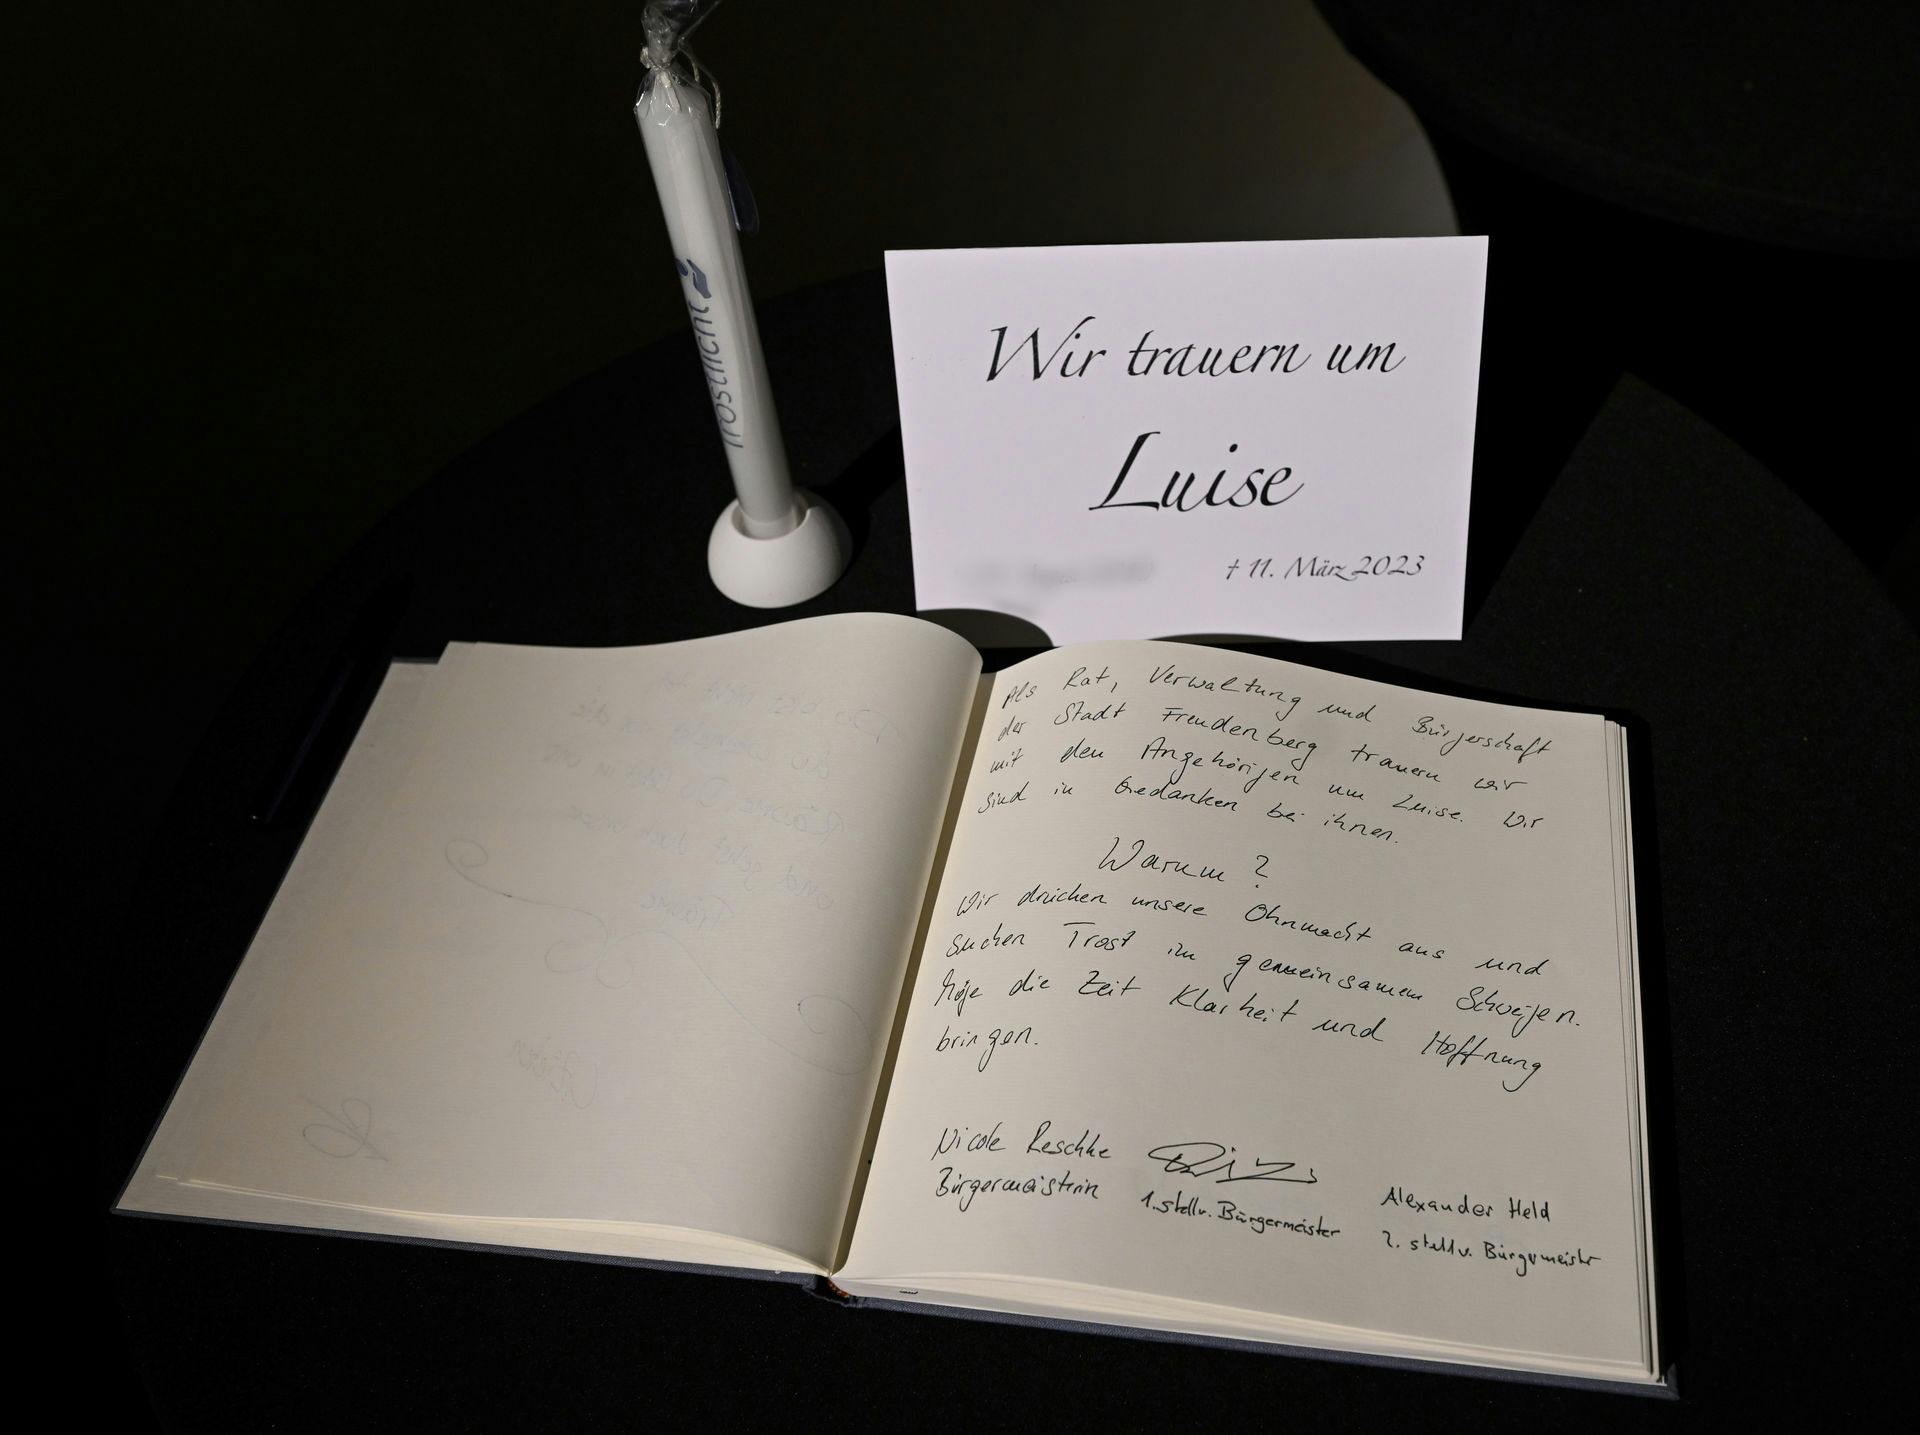 Trostlicht
Wir trauern um
Luise
† 11. März 2023
Als Rat, Verwaltung und Bürgerschaft
der Stadt Freudenberg trauern wir
mit den Angehörigen um Luise. Wir
sind in Gedanken bei ihnen.
Warum?
Wir drücken unsere Ohnmacht aus und
suchen Trost im gemeinsamen Schweigen.
Möge die Zeit Klarheit und Hoffnung
bringen.
Nicole Reschke
Bürgermeisterin
1. stellv. Bürgermeister
Alexander Held
2. stellv. Bürgermeister